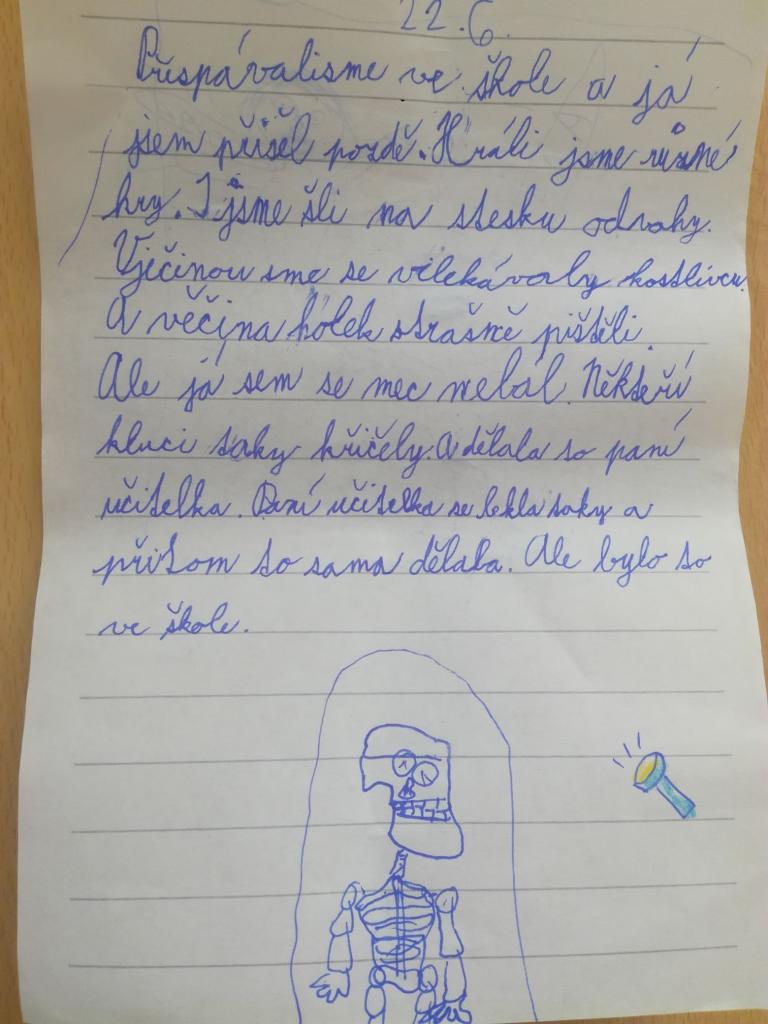 22.6.
Přespávalisme ve škole a já
jsem přišel pozdě. Hráli jsme různé
hry. I jsme šli na stesku odvahy.
Vječinou sme se vilekávaly kostlivcu.
A věčina holek strašně pištěli.
Ale já sem se nec nebál. Někteří
kluci taky křičely. A dělala to paní
učitelka. Paní učitelka se lekla taky a
přitom to sama dělala. Ale bylo to
ve škole.